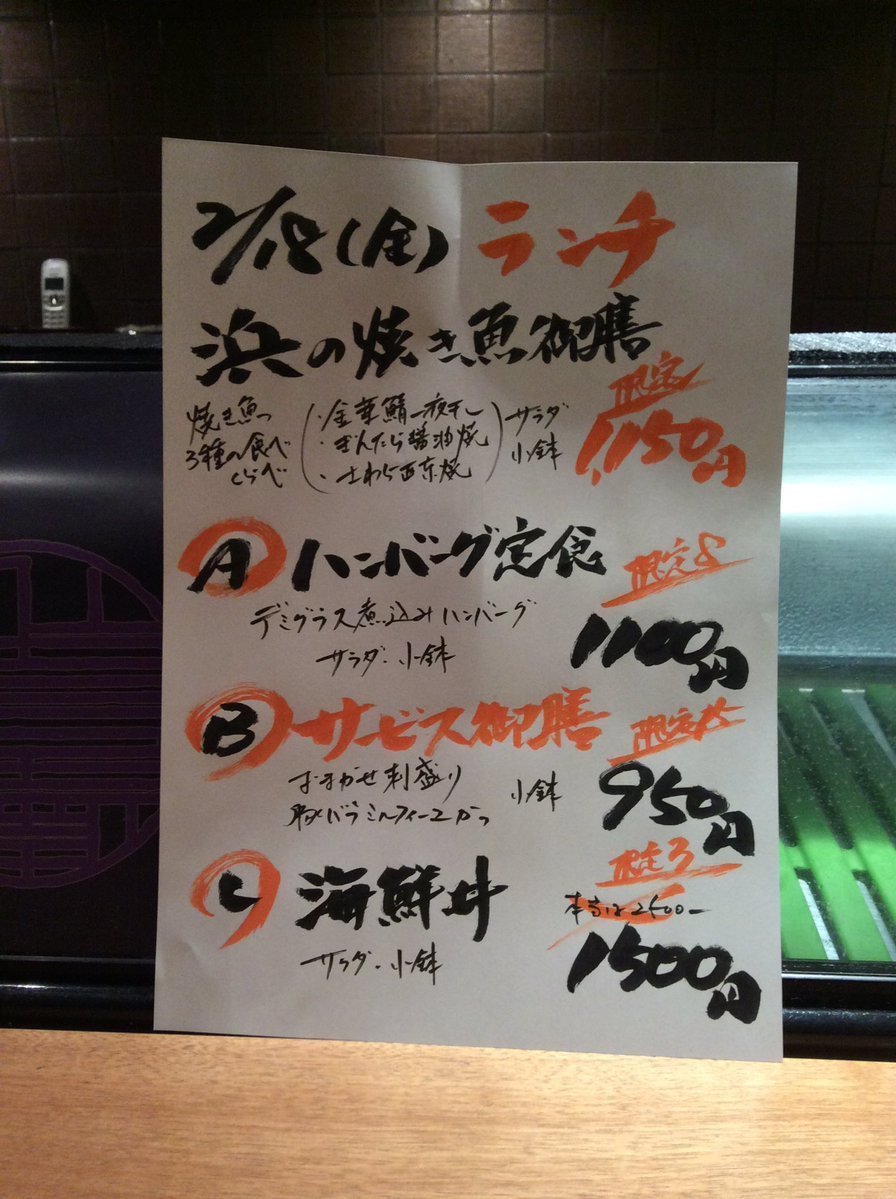 2/18(金) ランチ
浜の焼き魚御膳
限定
焼き魚
3種の食べ
くらべ
・金華鯖一夜干し
・ぎんだら醤油焼
・さわら西京焼
サラダ
小鉢
1,150円
A ハンバーグ定食 限定8
デミグラス煮込みハンバーグ
サラダ・小鉢
1100円
B サービス御膳 限定15
おまかせ刺盛り 小鉢
豚バラミルフィーユかつ
950円
C 海鮮丼 限定3
本当は2500ー
サラダ・小鉢
1500円